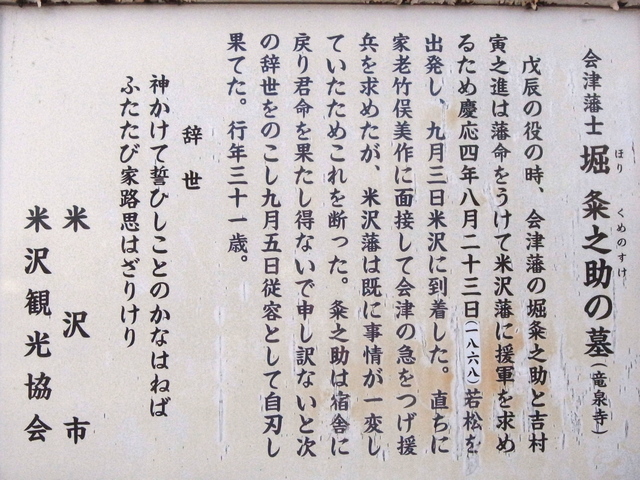 会津藩士 堀 粂之助の墓（竜泉寺）
ほり くめのすけ
戊辰の役の時、会津藩の堀粂之助と吉村
寅之進は藩命をうけて米沢藩に援軍を求め
るため慶応四年八月二十三日（一八六八）若松を
出発し、九月三日米沢に到着した。直ちに
家老竹俣美作に面接して会津の急をつげ援
兵を求めたが、米沢藩は既に事情が一変し
ていたためこれを断った。粂之助は宿舎に
戻り君命を果たし得ないで申し訳ないと次
の辞世をのこし九月五日従容として自刃し
果てた。行年三十一歳。
辞世
神かけて誓ひしことのかなはねば
ふたたび家路思はざりけり
米沢市
米沢観光協会